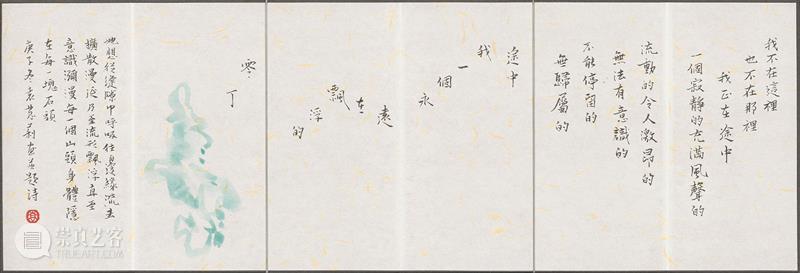 我不在這裡
也不在那裡
我正在途中
一個寂靜的充滿風聲的
流動的令人激昂的
無法有意識的
不能停留的
無歸屬的
途中
我
一
個
永
遠
在
飄
浮
的
零丁
她想從縫隙中呼吸任息緣流去
擴散漫延乃至流形飄浮直至
意識瀰漫每一個山頭身體隱
在每一塊石頭
庚子冬袁慧莉畫並題詩
崇真艺客